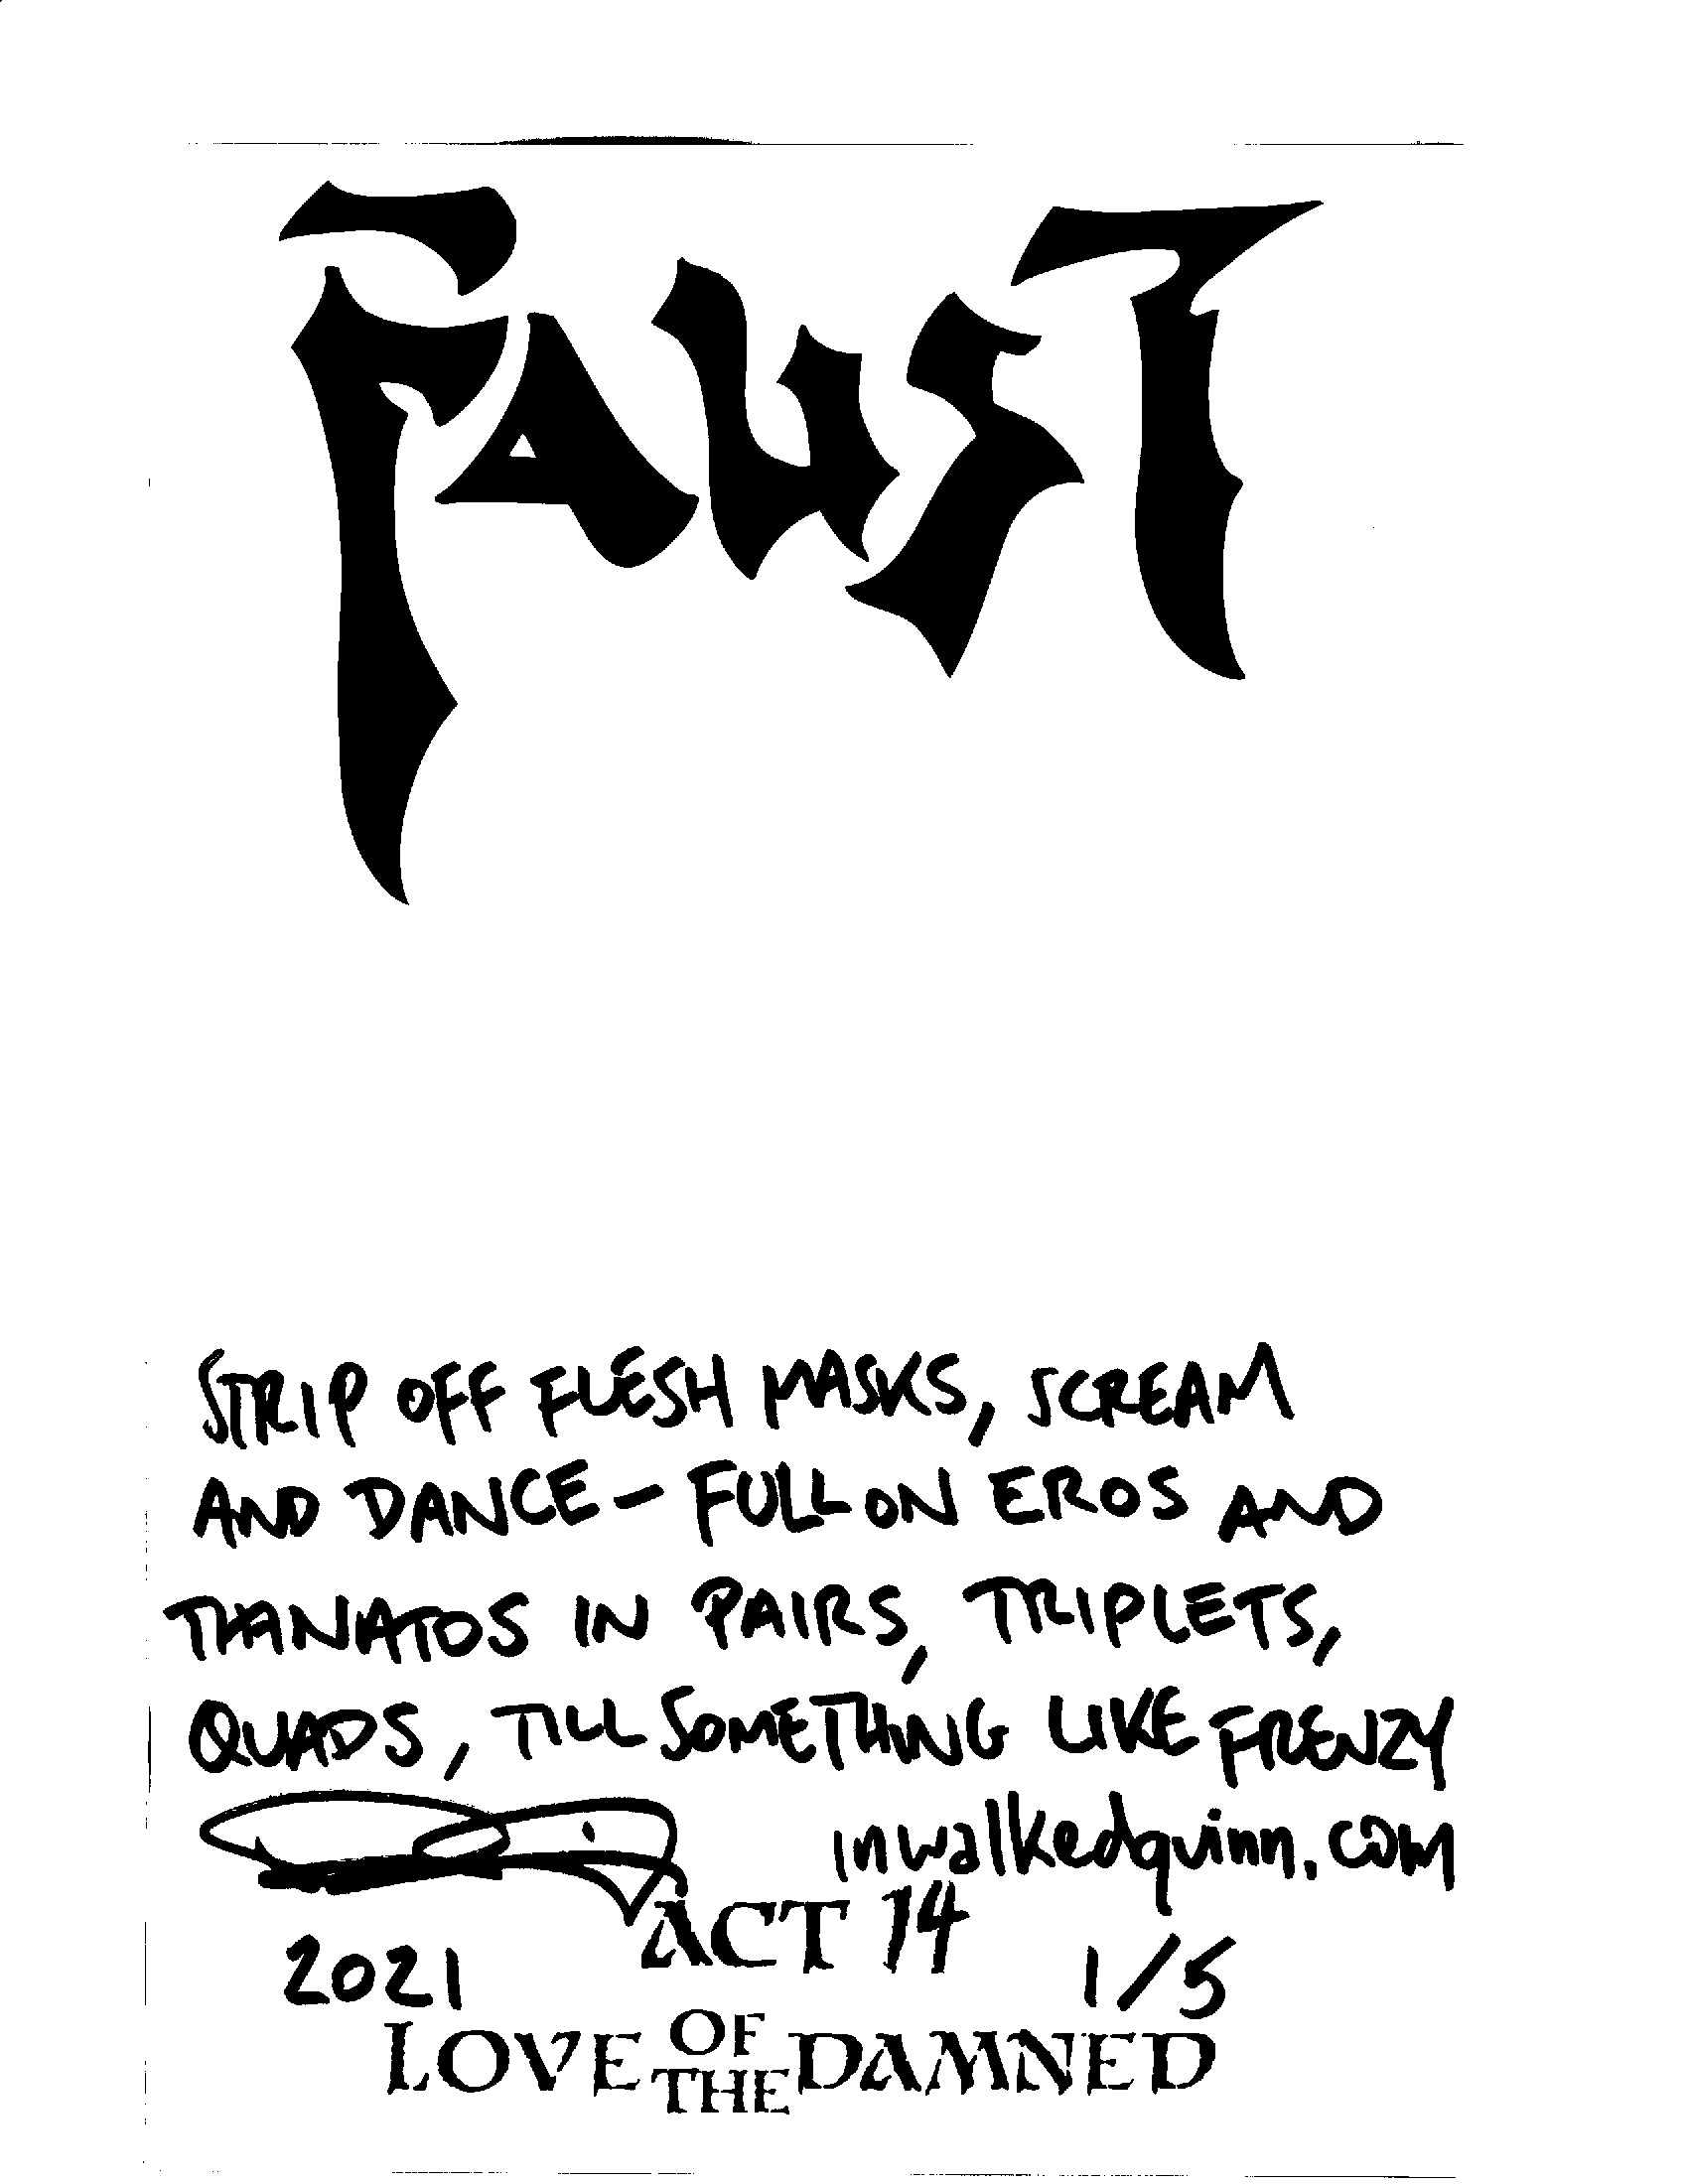 FAUST
STRIP OFF FLESH MASKS, SCREAM
AND DANCE – FULL ON EROS AND
THANATOS IN PAIRS, TRIPLETS,
QUADS, TILL SOMETHING LIKE FRENZY
inwalkedquinn.com
ACT 14
2021 1/5
LOVE OF THE DAMNED